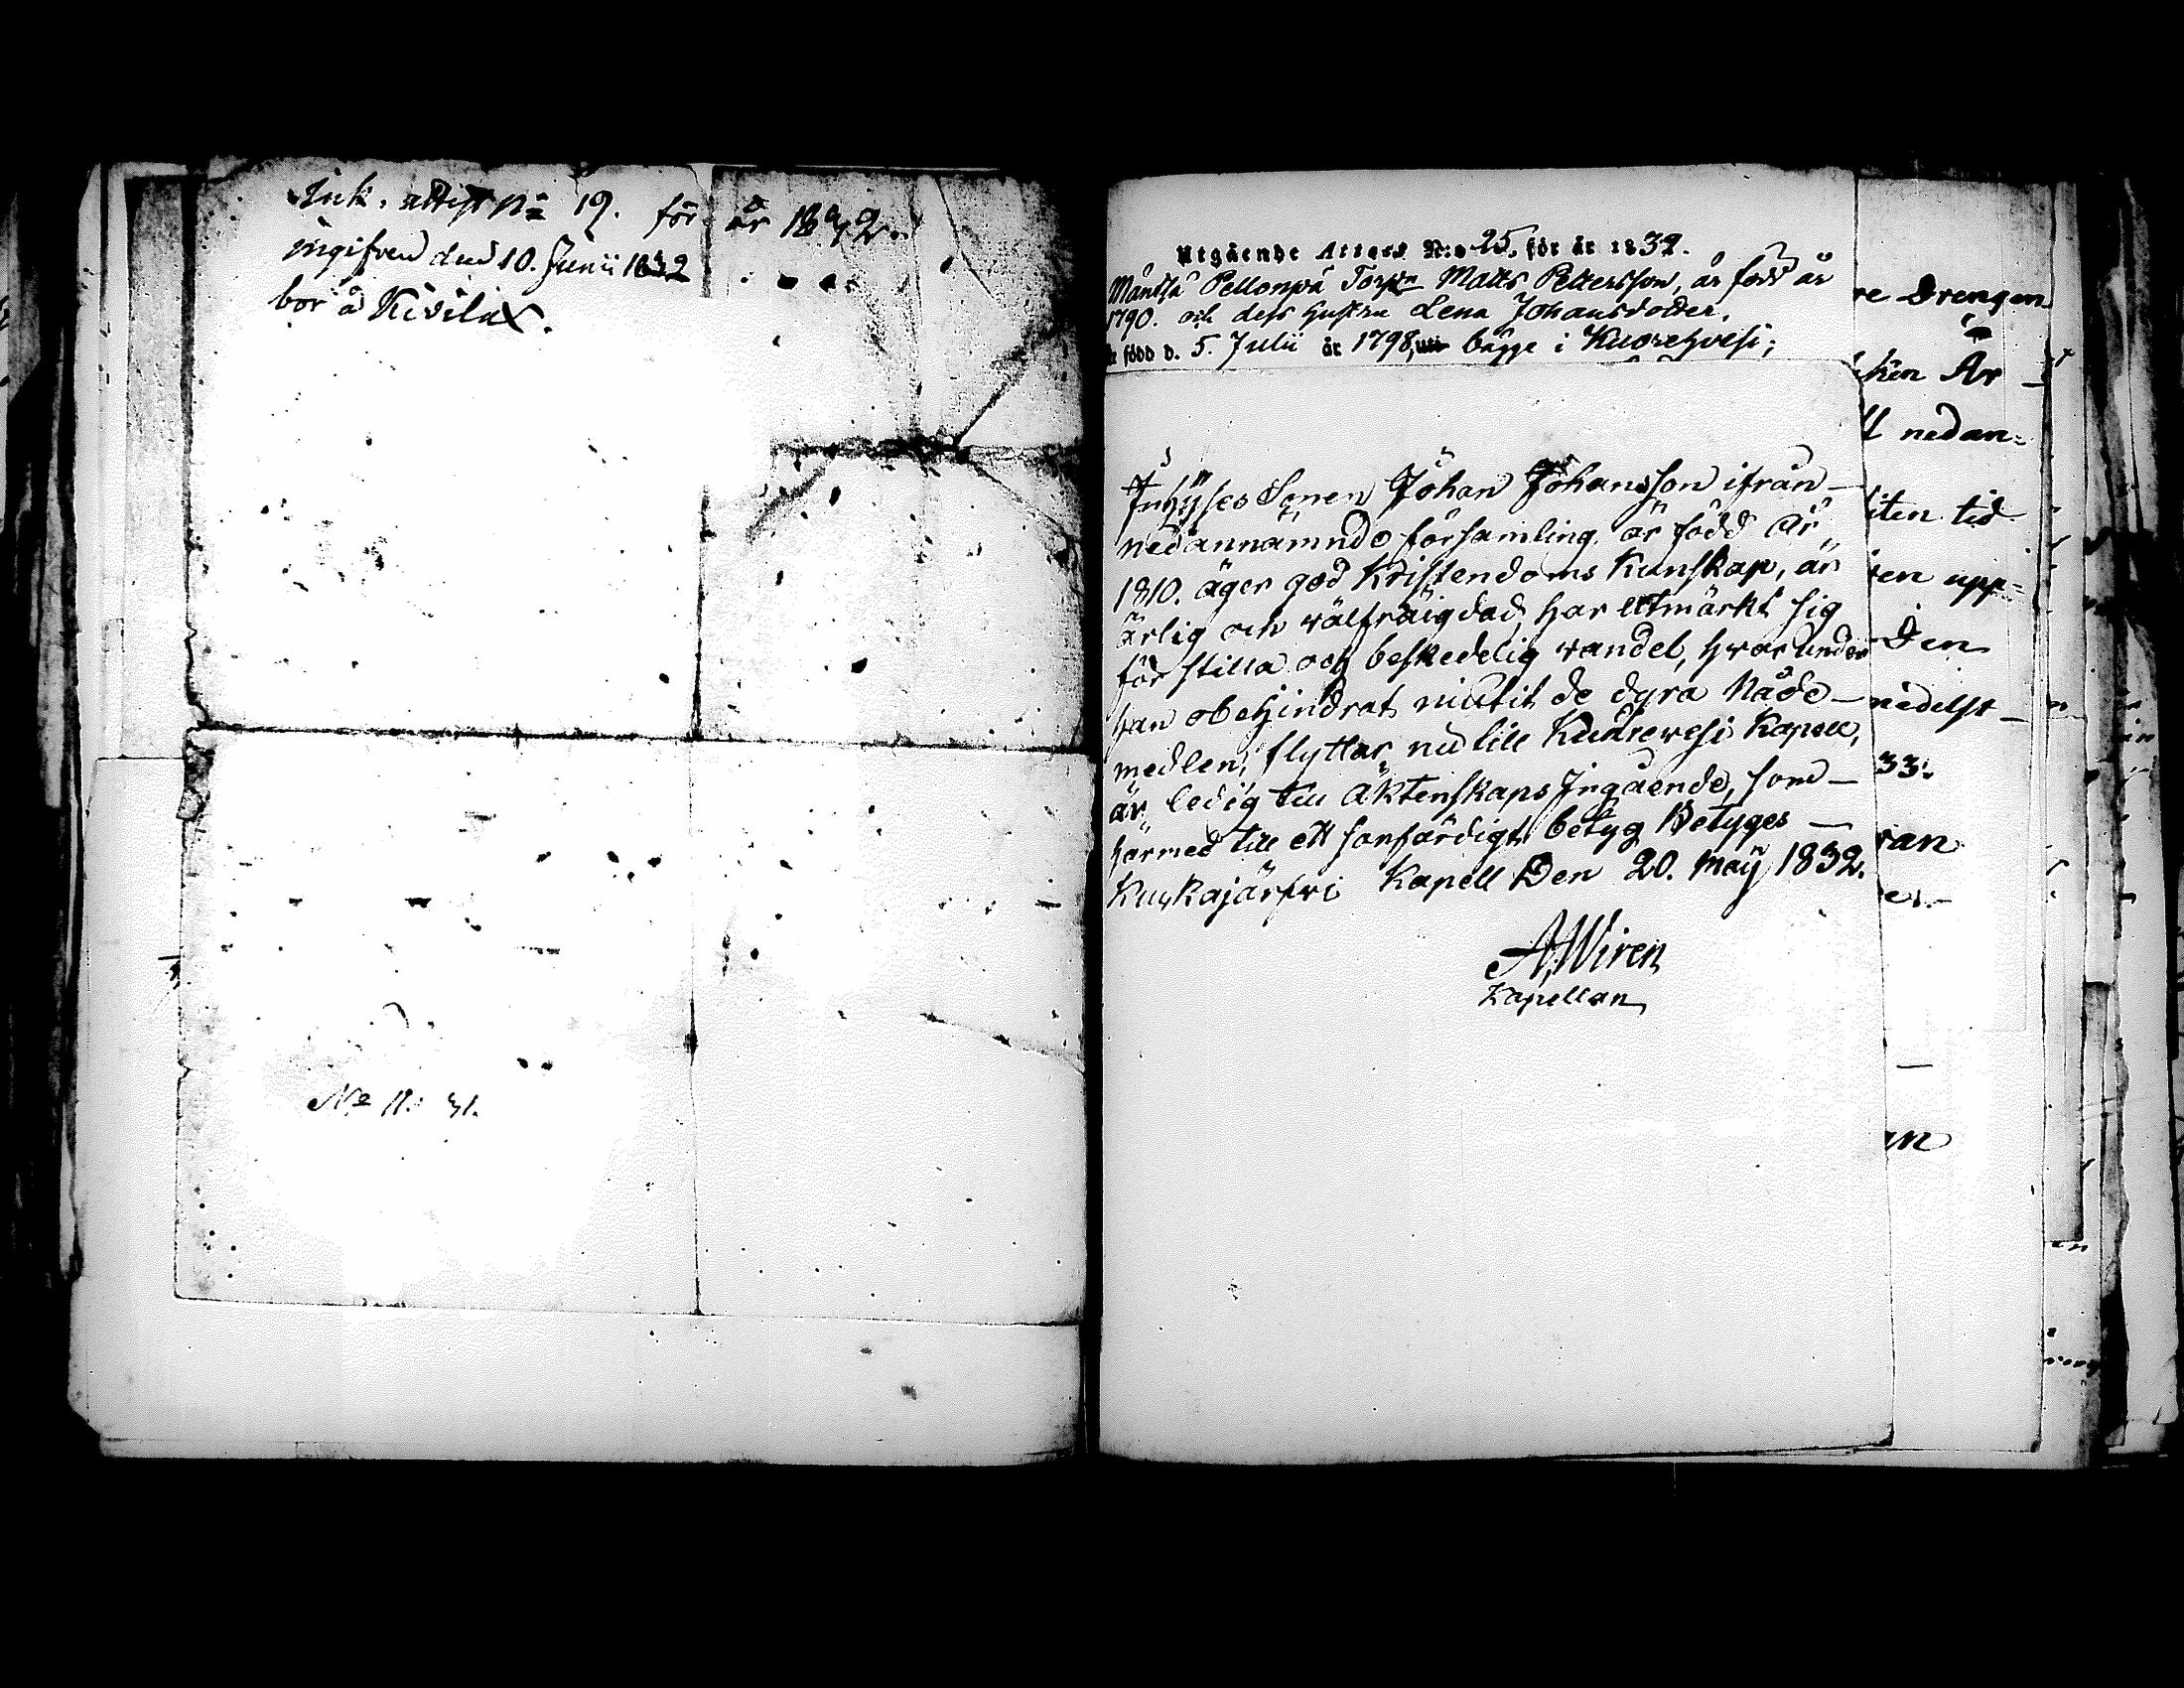 Ink. attest No 19. för år 1832.
ingifven den 10. Junii 1832
bor å Kivilax.
No 11. 31.
Utgående Attest N:o 25. för år 1832.
Mändsä Pellonpä Torpn Matts Pettersson, är född år
1790. och dess hustru Lena Johansdotter,
är född d. 5. Julii år 1798, uti bägge i Kuorehvesi;
Inhyses Sonen Johan Johansson ifrån
nedannämnde församling, är född År
1810. äger god Kristendoms Kunskap, är
ärlig och välfräigdad, har utmärkt sig
för stilla och beskedelig vandel, hvarunder
han obehindrat niutit de dyra Nåde-
medlen, flyttar nu till Kuorewesi Kapell,
är ledig till Äktenskaps Ingående, som
härmed till ett sanfärdigt betyg Betyges
Kuhkajärfvi Kapell Den 20. Maij 1832.
A. Wiren
Kapellan
re Drengen
ken År
nedan-
liten tid
upp-
Den
medelst
33.
ran